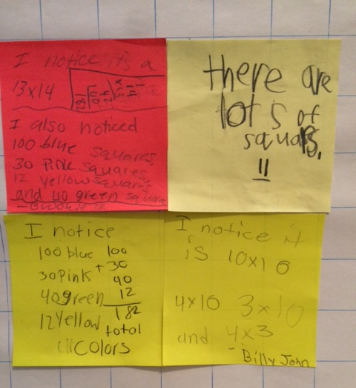 I notice it's a
13x14
I also noticed
100 blue squares
30 Pink squares
12 yellow squares
and 40 green squares
there are
lots of
squares.
!!
I notice
100 blue 100
30 Pink + 30
40 green 40
12 Yellow 12
182
total
Colors
I notice it
is 10x10
4x10 3x10
and 4x3
- Billy John